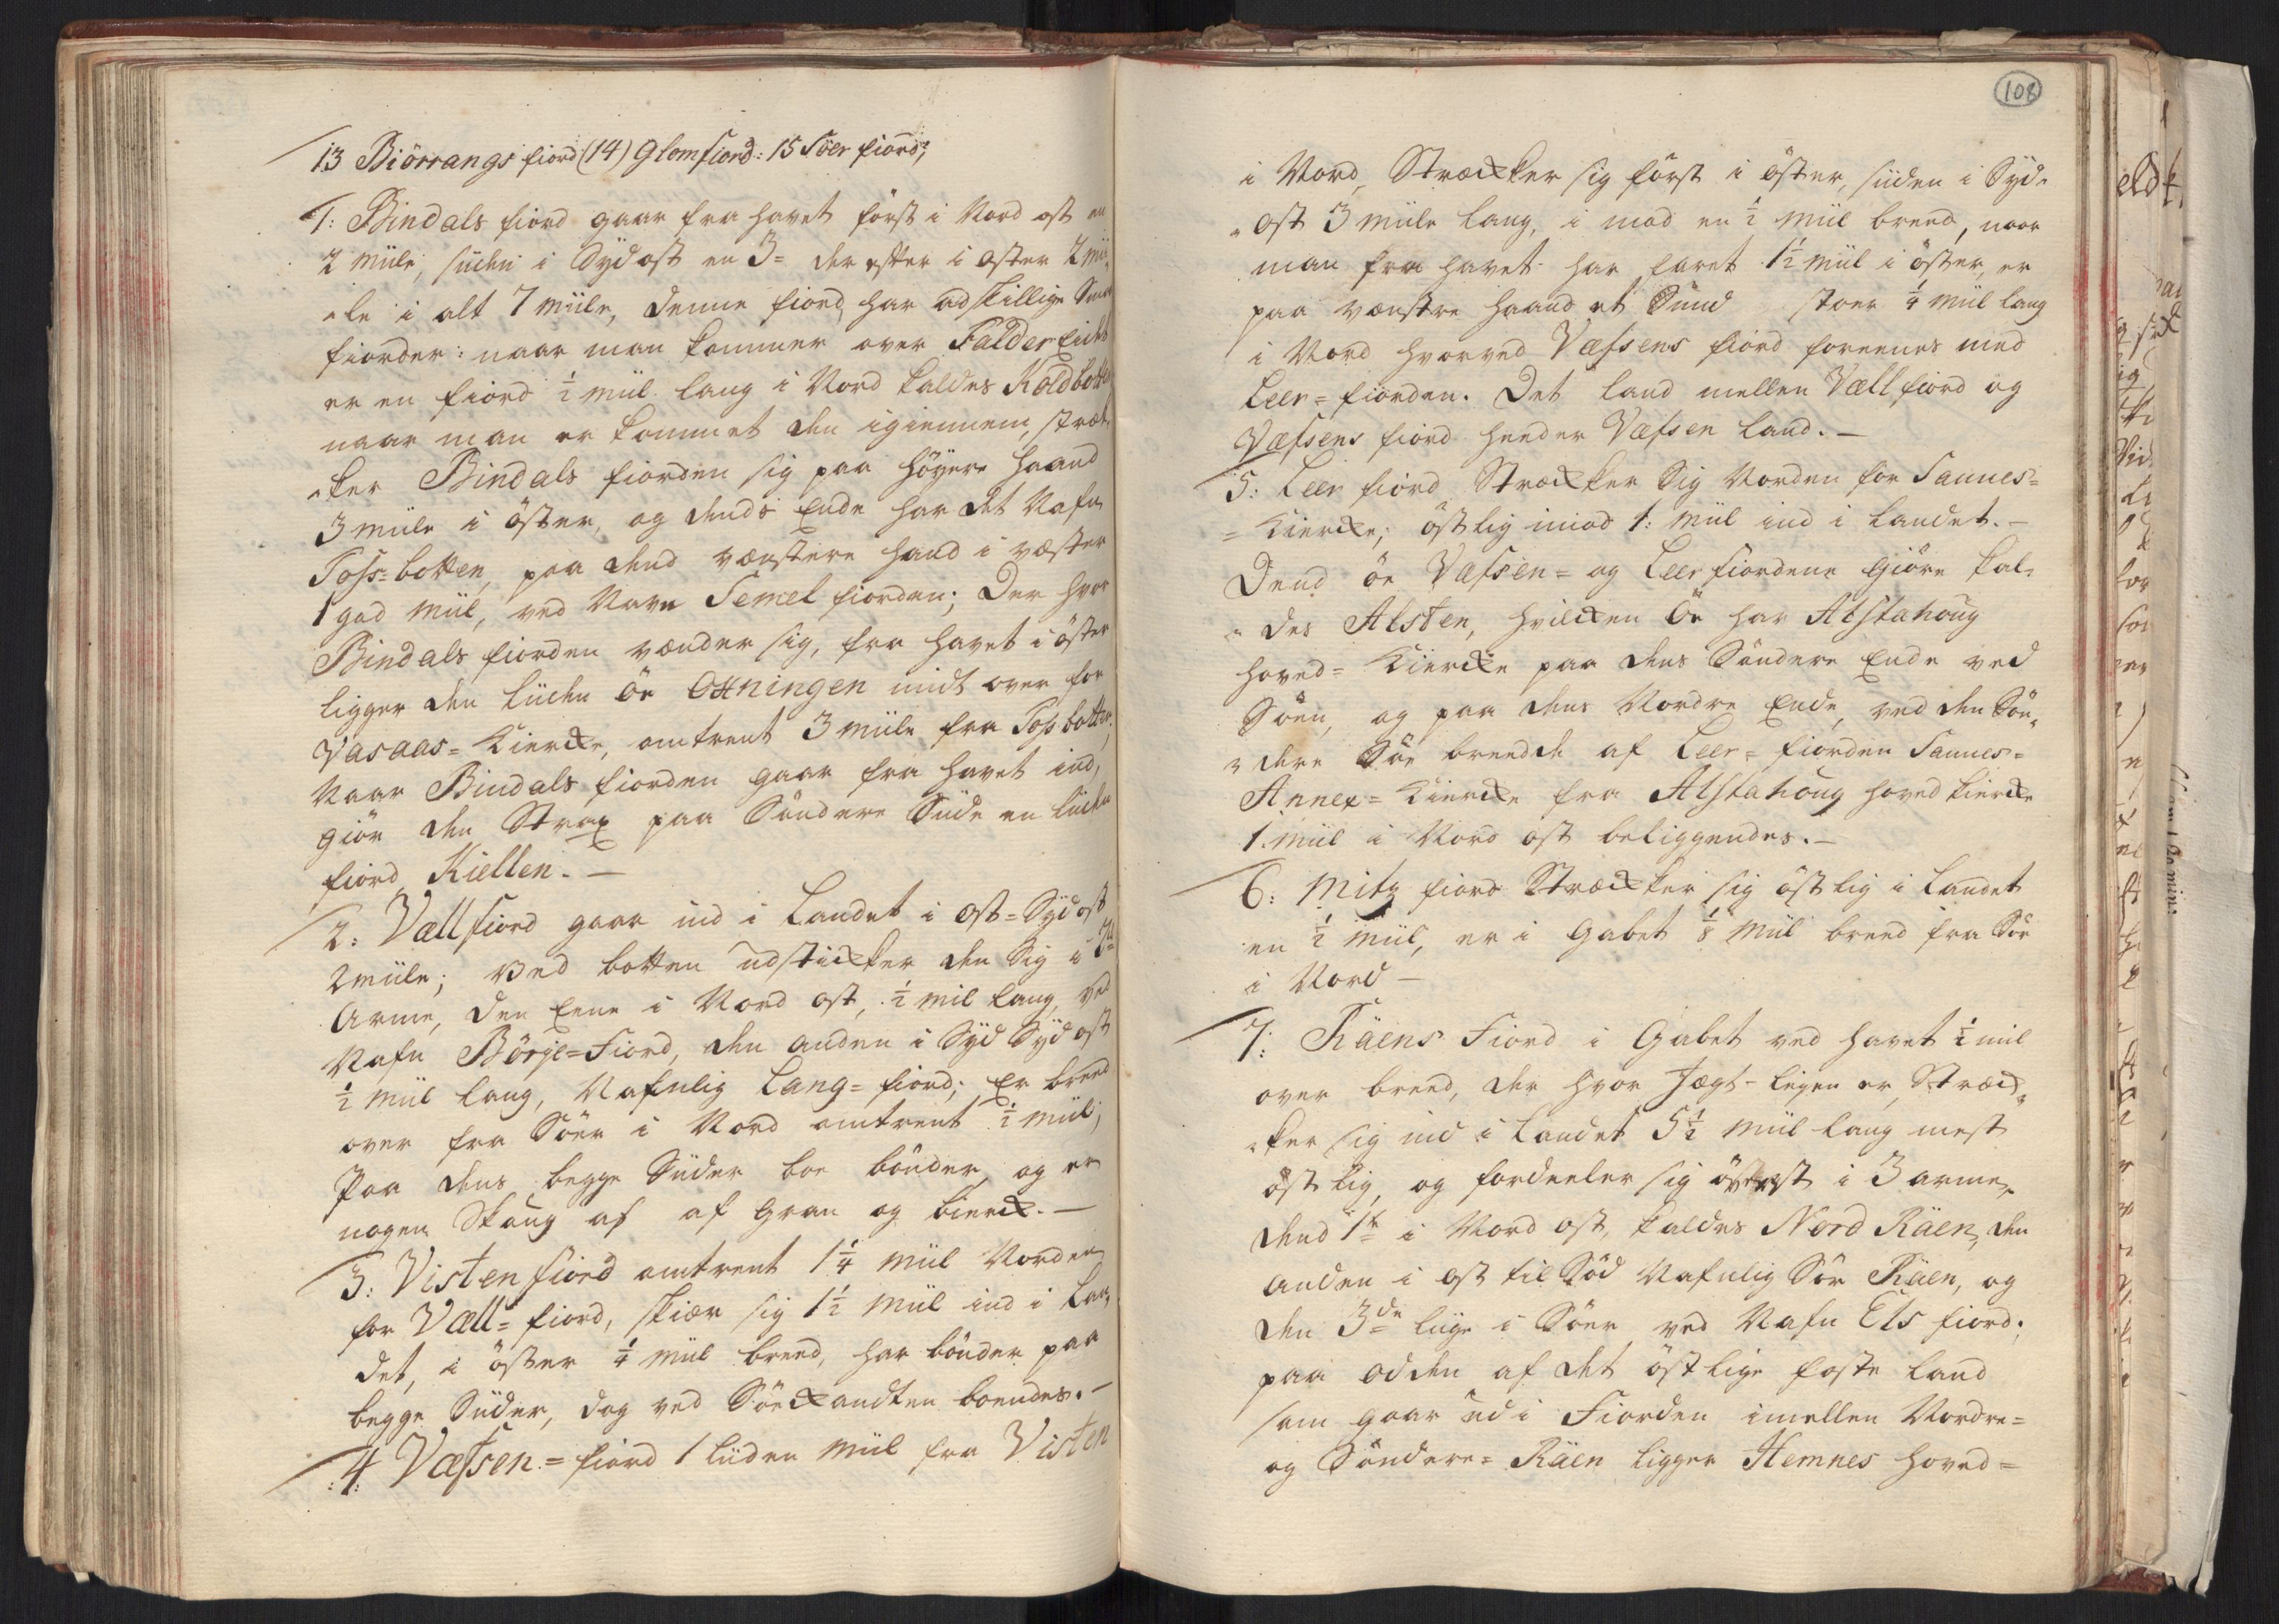 13 Biörrangs fiord (14) Glomfiord: 15 Söer fiord;
1: Bindals fiord gaar fra havet först i Nord ost en
2 miile, siiden i Sydost en 3= der efter i oster 2 mii„
„le i alt 7 miile, denne fiord har adskillige Smaa
fiorder: naar man kommer over Falder
er en fiord ½ miil lang i Nord kaldes Koldbotten
naar man er kommet den igiennem, stræk„
„ker Bindals fiorden sig paa höyere haand
3 miile i öster, og dends Ende har det Nafn
Tofs=botten, paa dend venstere hand i væster
1 god miil, ved Navn Temel fiorden; Der hvor
Bindals fiorden vender sig, fra havet i öster
ligger den liiden öe Otteringen midt over for
Vasaas=Kiercke, omtrent 3 miile fra Tofsbotten,
Naar Bindals fiorden gaar fra havet ind,
giör den Strax paa Söndere Siide en liiden
fiord Kiellen. —
2: Vællfiord gaar ind i Landet i ost=Sydost
2 miile; ved botten udsticker den sig i 2de
Arme, den Eene i Nord ost, ½ mil lang, ved
Nafn Börje=Fiord, den anden i Syd Sydost
½ miil lang, Nafnlig Lang=fiord; Er breed
over fra Söer i Nord omtrent ½ miil;
Paa dens begge Siider boe bönder, og er
nogen Skoug af af Gran og bierck. —
3: Visten fiord omtrent 1¼ miil Norden
for Væll=fiord, skiær sig 1½ miil ind i Lan„
det, i öster ¼ miil breed, har bönder paa
begge Siider, dog ved Söe Kandten boendes. —
:4: Væfsen=fiord 1 liiden miil fra Visten
108
i Nord, Strecker sig först i öster, siiden i Syd„
„ost 3 miile lang, i mod en ½ miil breed, naar
man fra havet har faret 1½ miil i öster, er
paa venstre haand et Sund stoer ¼ miil lang
i Nord hvorved Væfsens fiord foreenes med
Leer=fiorden. Det land mellem Vællfiord og
Væfsens fiord heeder Væfsen land. —
5: Leer fiord Strecker sig Norden for Sannes=
=Kiercke; östlig imod 1: miil ind i Landet. —
Dend öe Væfsen= og Leerfiordene giöre kal„
„des Alsten, hvilcken öe har Alstahoug
hoved=Kiercke paa dens Söndere Ende ved
Söen, og paa dens Nordre Ende, ved den Sön„
„dere Söe bredde af Leer=fiorden Sannes=
Annex=Kiercke fra Alstahoug hoved kiercke
1. miil i Nord ost beliggendes. —
6: Mitz fiord Strecker sig östlig i Landet
en ½ miil, er i Gabet ⅛ miil breed fra Sör
i Nord —
7: Räens Fiord i Gabet ved havet ½ mil
over breed, der hvor Jægt-leyen er, Stræc„
„ker sig ind i Landet 5½ miil lang mest
östlig, og fordeeler sig österst i 3 arme,
dend 1te i Nord ost, kaldes Nord Räen, den
anden i ost til Söd Nafnlig Sör Räen, og
den 3de liige i Söer ved Nafn Els fiord;
paa odden af det östlige faste land
som gaar ud i Fiorden imellem Nordre=
og Söndere=Räen ligger Hemnes hoved=